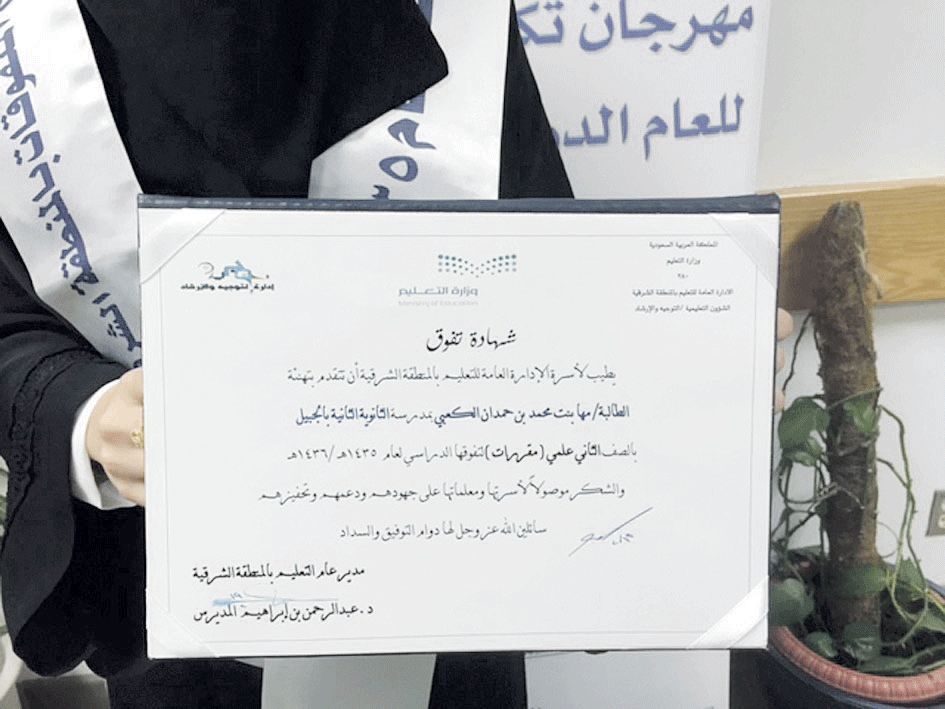 مهرجان
للعام
المملكة العربية السعودية
وزارة التعليم
٢٨٠
الادارة العامة للتعليم بالمنطقة الشرقية
الشؤون التعليمية /التوجيه والإرشاد
وزارة التعليم
Ministry of Education
إدارة التوجيه والإرشاد
شهادة تفوق
يطيب لأسرة الإدارة العامة للتعليم بالمنطقة الشرقية أن تتقدم بتهنئة
الطالبة/ مها بنت محمد بن حمدان الكعبي بمدرسة الثانوية الثانية بالجبيل
بالصف الثاني علمي (مقررات) لتفوقها الدراسي لعام ١٤٣٥هـ/١٤٣٦هـ
والشكر موصولاً لأسرتها ومعلماتها على جهودهم ودعمهم وتحفيزهم
سائلين الله عز وجل لها دوام التوفيق والسداد
مدير عام التعليم بالمنطقة الشرقية
د. عبدالرحمن بن إبراهيم المديرس